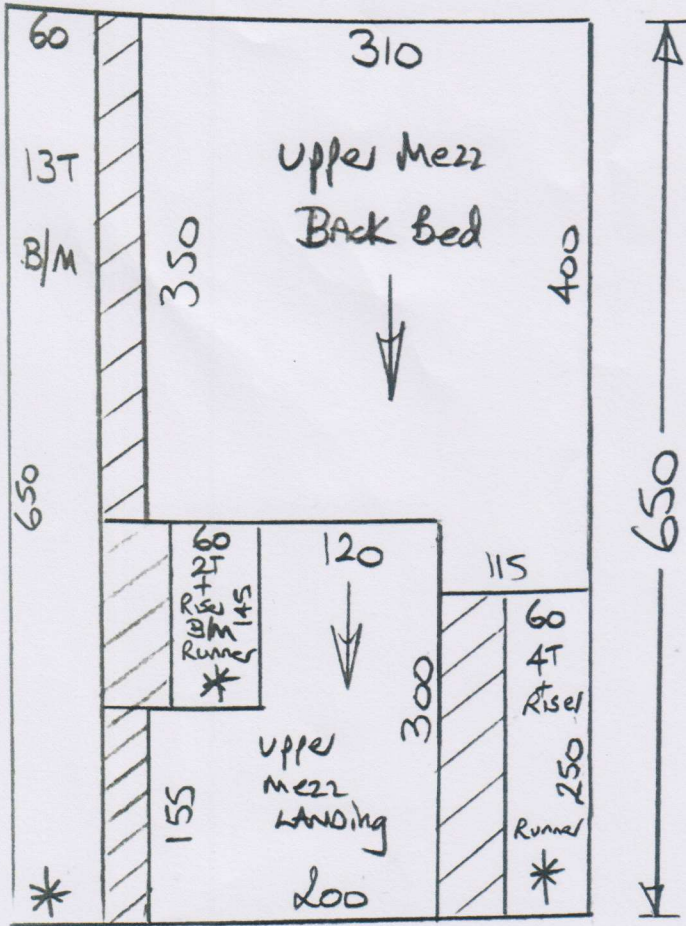 60
310
13T
B/M
Upper Mezz
Back Bed
350
400
650
650
60
2T
+
Riser
B/M
Runner
*
145
120
115
60
4T
+
Riser
250
Runner
*
300
155
Upper
Mezz
Landing
200
*